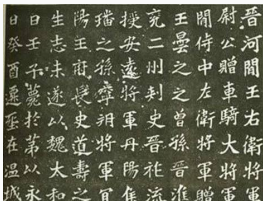 晉河間王右衛將軍
尉公贈車騎大將軍
間侍中左衛將軍贈
王曇之之曾孫晉淮
兗二州刺史晉祚流
授安遠將軍丹陽侯
璠之孫寧朔將軍宜
陽王府長史道壽之
生志未遂以魏太和
日壬子薨於第以永
日癸酉遷塋在溫城